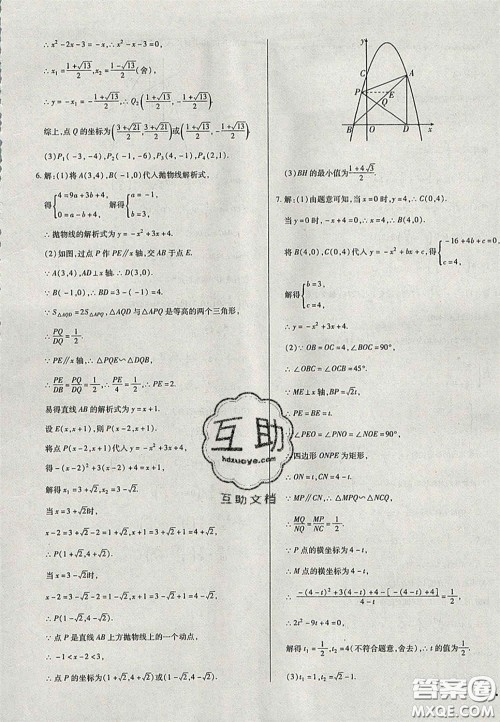 ∴ x²-2x-3=x, ∴ x²-3x-3=0,
∴ x₁=(1+√13)/2, x₂=(1-√13)/2(舍);
∴ y=-x₁=-(1+√13)/2, ∴ Q₂((1+√13)/2, -(1+√13)/2)
综上,点 Q 的坐标为((3+√21)/2, (3+√21)/2)或((1+√13)/2, -(1+√13)/2)
(3)P₁(-3,-4), P₂(-1,-4), P₃(1,4), P₄(3,4).
6.解:(1)将 A(3,4),B(-1,0)代入抛物线解析式,
得{4=9a+3b+4, 0=a-b+4, 解得{a=-1, b=3.
∴ 抛物线的解析式为 y=-x²+3x+4.
(2)如图,过点 P 作 PE//x 轴,交 AB 于点 E.
∵ A(3,4),AD⊥x 轴,∴ D(3,0).
∵ B(-1,0),∴ BD=3-(-1)=4.
∵ S△AQD=2S△APQ,△AQD 与 △APQ 是等高的两个三角形,
∴ PQ/DQ=1/2.
∵ PE//x 轴,∴ △PQE∽△DQB,
∴ PE/DB=PQ/DQ=1/2,∴ PE/4=1/2,∴ PE=2.
易得直线 AB 的解析式为 y=x+1.
设 E(x,x+1),则 P(x-2,x+1).
将点 P(x-2,x+1)代入 y=-x²+3x+4,
得-(x-2)²+3(x-2)+4=x+1.
解得 x₁=3+√2,x₂=3-√2.
当 x=3+√2时,
x-2=3+√2-2=1+√2,x+1=3+√2+1=4+√2.
∴ P(1+√2,4+√2).
当 x=3-√2时,
x-2=3-√2-2=1-√2,x+1=3-√2+1=4-√2.
∴ P(1-√2,4-√2).
∵ 点 P 是直线 AB 上方抛物线上的一个动点,
∴ -1<x-2<3.
∴ 点 P 的坐标为(1+√2,4+√2)或(1-√2,4-√2).
y
C A
P E
Q
B O D x
(3)BH 的最小值为(1+4√3)/2.
7.解:(1)由题意可知,当 x=0 时,y=4,∴ C(0,4).
当 y=0 时,-x+4=0,∴ x=4,∴ B(4,0).
将 B(4,0),C(0,4)代入 y=-x²+bx+c,得{-16+4b+c=0, c=4,
解得{b=3, c=4,
∴ y=-x²+3x+4.
(2)∵ OB=OC=4,∠BOC=90°,
∴ ∠OBC=∠OCB=45°.
∵ ME⊥x 轴,BP=√2t,
∴ PE=BE=t.
∵ ∠PEO=∠PNO=∠NOE=90°,
∴ 四边形 ONPE 为矩形.
∴ ON=t,∴ CN=4-t.
∵ MP//CN,∴ △MPQ∽△NCQ,
∴ MQ/NQ=MP/NC=1/2.
∵ P 点的横坐标为 4-t,
∴ M 点的横坐标为 4-t.
∴ (-(4-t)²+3(4-t)+4-[-(4-t)+4])/(4-t)=1/2.
∴ 2t²-9t+4=0.
解得 t₁=1/2,t₂=4(不符合题意,舍去),∴ t 的值为1/2.
互助
hdzuoye.com
互助文档
答案圈
MXQE.COM